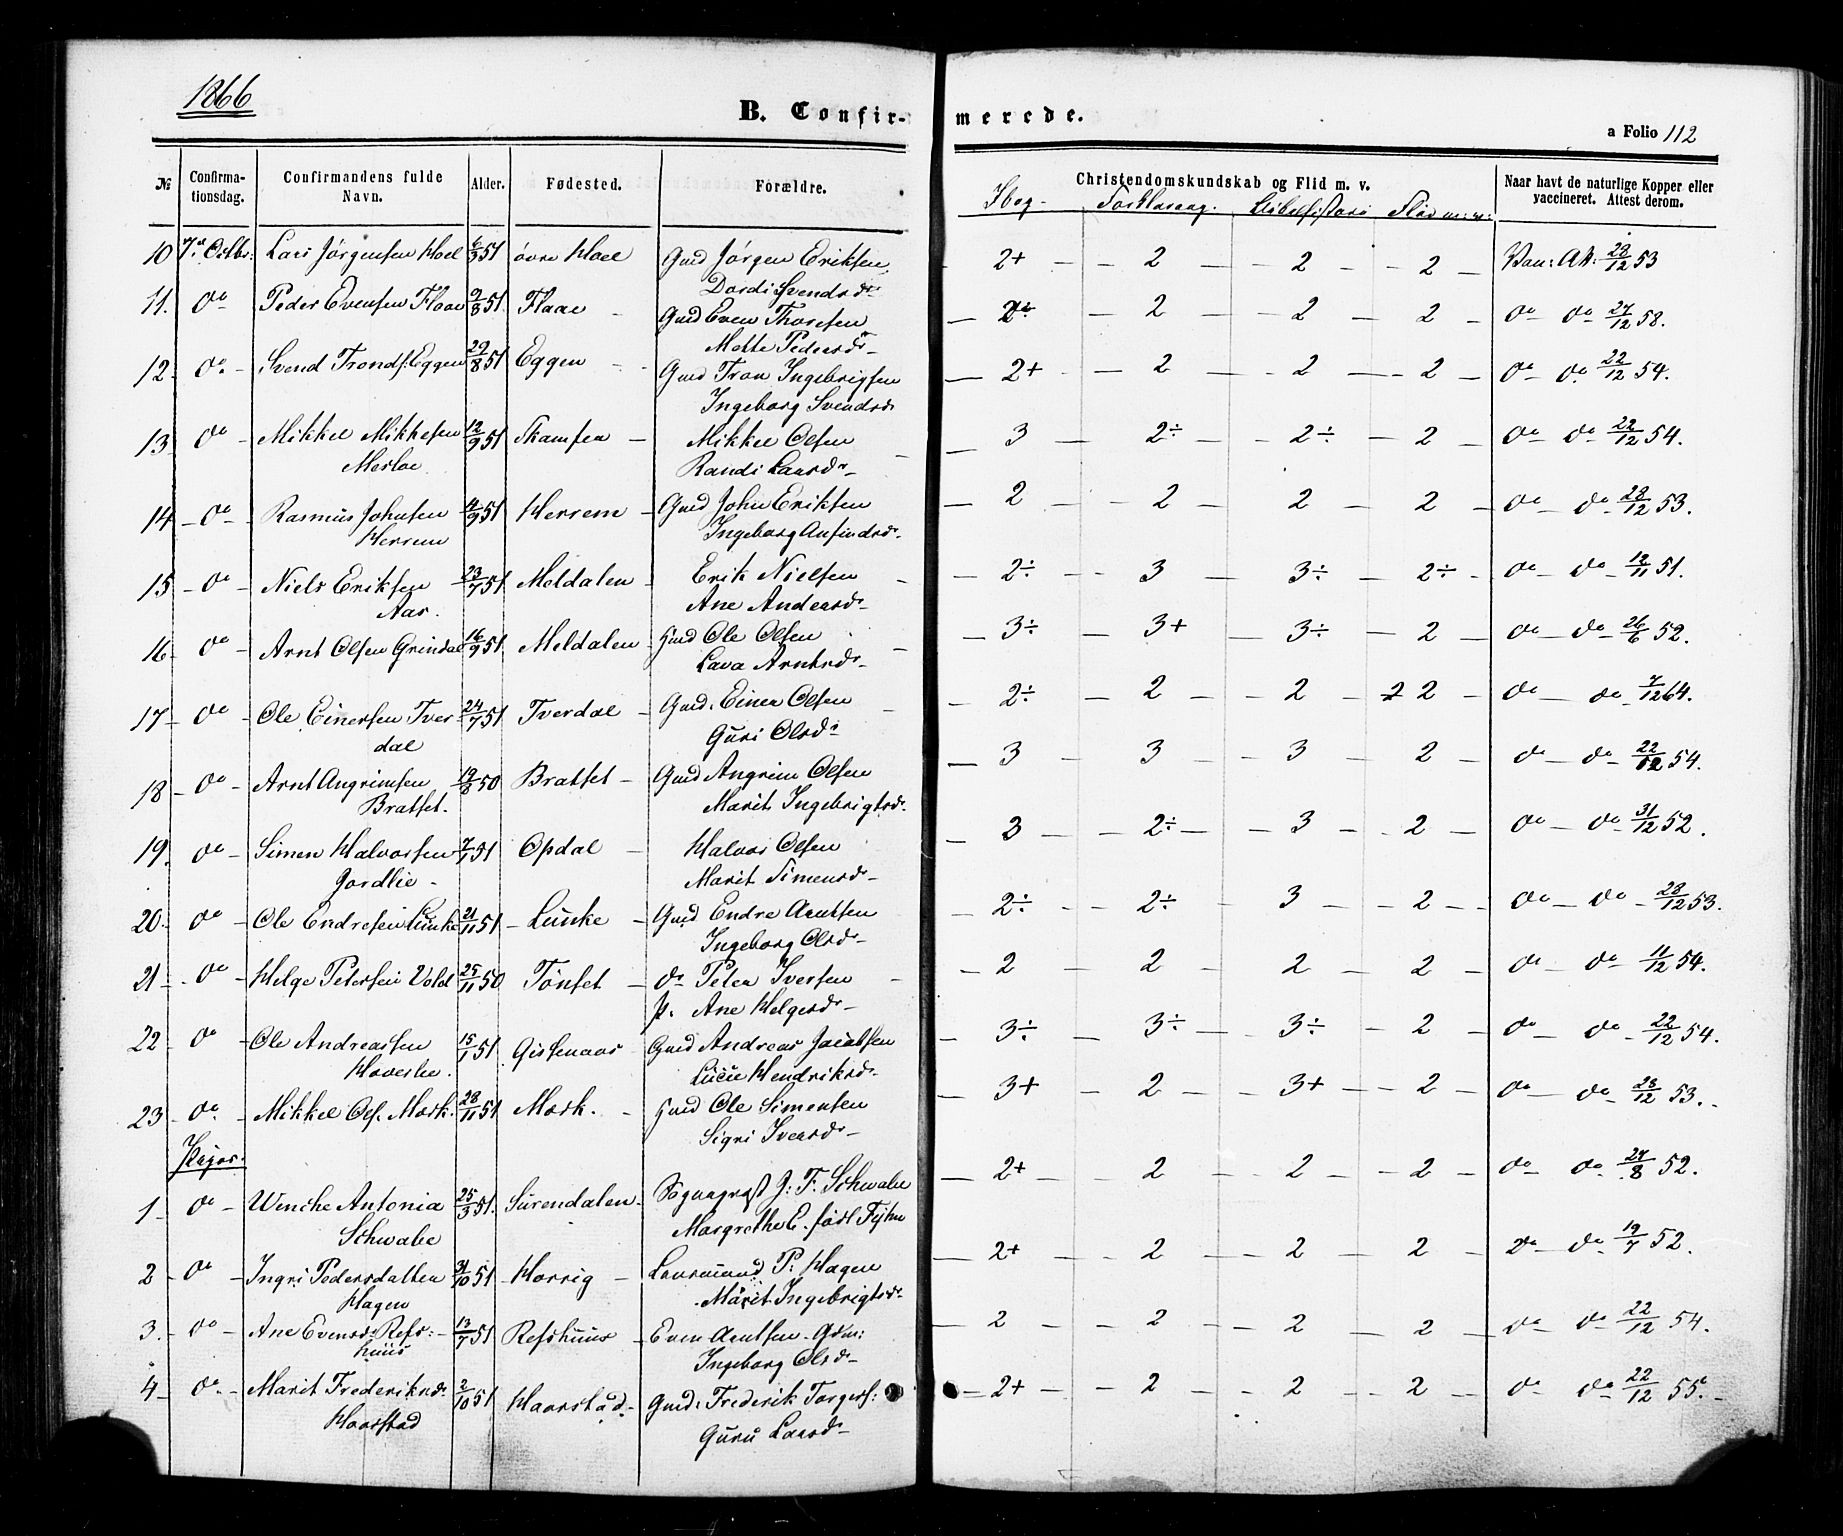 1866
B. Confir- merede.
a Folio 112
№ Confirma- tionsdag. Confirmandens fulde Navn. Alder. Fødested. Forældre. Christendomskundskab og Flid m. v. Naar havt de naturlige Kopper eller vaccineret. Attest derom.
Ibog. Forklaring. Bibelhistorie Flid m: v:
10 7de Octbr: Lars Jørgensen Hoel 6/3 51 øvre Hoel Gmd Jørgen Eriksen 2+ — 2 — 2 — 2 — Vac: At: 28/12 53
Dordi Svendsdr
11. do Peder Evensen Flaae 9/8 51 Flaae — Gmd Even Thoresen — 2 — 2 — 2 — 2 — do do 27/12 58.
Mette Pedersdr
12 — do — Svend Tronds: Eggen 29/8 51 Eggen — Gmd Tron Ingebrigtsen — 2+ — 2 — 2 — 2 — do — do 22/12 54.
Ingeborg Svendsdr
13 — do — Mikkel Mikkelsen 12/9 51 Skamfer — Mikkel Olsen — 3 — 2÷ — 2÷ — 2 — do — do 22/12 54.
Merloe Randi Larsdr
14 — do — Rasmus Johnsen 4/9 51 Herrem — Gmd John Eriksen — 2 — 2 — 2 — 2 — do — do 28/12 53.
Herrem Ingeborg Anfindsdr.
15 — do — Niels Eriksen 23/7 51 Meldalen — Erik Nielsen — 2÷ — 3 — 3÷ — 2÷ — do — do — 12/11 51.
Aar. Ane Andersdr
16 — do — Arnt Olsen Grindal 16/9 51 Meldalen — Hmd Ole Olsen — 3÷ — 3+ — 3÷ — 2 — do — do — 26/6 52.
Lava Arntsdr
17 — do — Ole Einersen Tver- 24/7 51 Tverdal — Gmd. Einer Olsen — 2÷ — 2 — 2 — 2 — do — do — 7/12 64.
dal Guri Olsdr
18 — do — Arnt Angrimsen 19/8 50 Bratset — Gmd Angrim Olsen — 3 — 3 — 3 — 2 — do — do — 22/12 54.
Bratset. Marit Ingebrigtsdr.
19. do — Simen Halvorsen 7/1 51 Opdal — Halvor Olsen 3 — 2÷ — 3 — 2 — do — do 31/12 52.
Gordlie — Marit Simensdr
20. do — Ole Endresen Lunke 21/11 51 — Lunke — Gmd Endre Arntsen — 2÷ — 2÷ — 3 — 2 — do — do — 28/12 53.
Ingeborg Olsdr
21 — do — Helge Petersen Vold 25/11 50 Tønset — do Peter Iversen — 2 — 2 — 2 — 2 — do — do 11/12 54.
p. Ane Helgesdr
22 do — Ole Andreassen 15/1 51 Gisenaas — Gmd Andreas Jacobsen — 3÷ — 3÷ — 3÷ — 2 — do — do — 22/12 54.
Haverlie. Lucie Hendriksdr
23 — do — Mikkel Ols. Mork. 28/11 51 Mork. — Hmd Ole Simensen — 3+ — 2 — 3+ — 2 — do — do 28/12 53.
Sigri Iversdr
Piger.
1 — do — Wenche Antonia 25/3 51. Surendalen. Sognepræst J: F. Schwabe — 2+ — 2 — 2 — 2 — do — do 27/8 52.
Schwabe Margrethe E. født Tyhn
2 — do — Ingri Pedersdatter 31/10 51 — Horrig — Lensmand P. Hagen — 2+ — 2 — 2 — 2 — do — do 19/7 52.
Hagen Marit Ingebrigtsdr
3. — do — Ane Evensd: Refs: — 13/7 51 Refshuus — Even Arntsen. Gdm: — 2 — 2 — 2 — 2 — do — do — 22/12 54.
huus Ingeborg Olsdr
4 — do — Marit Frederiksdr 2/10 51 Haarstad — Gmd: Frederik Torgers: — 2+ — 2 — 2 — 2 — do — do 22/12 55.
Haarstad Guru Larsdr